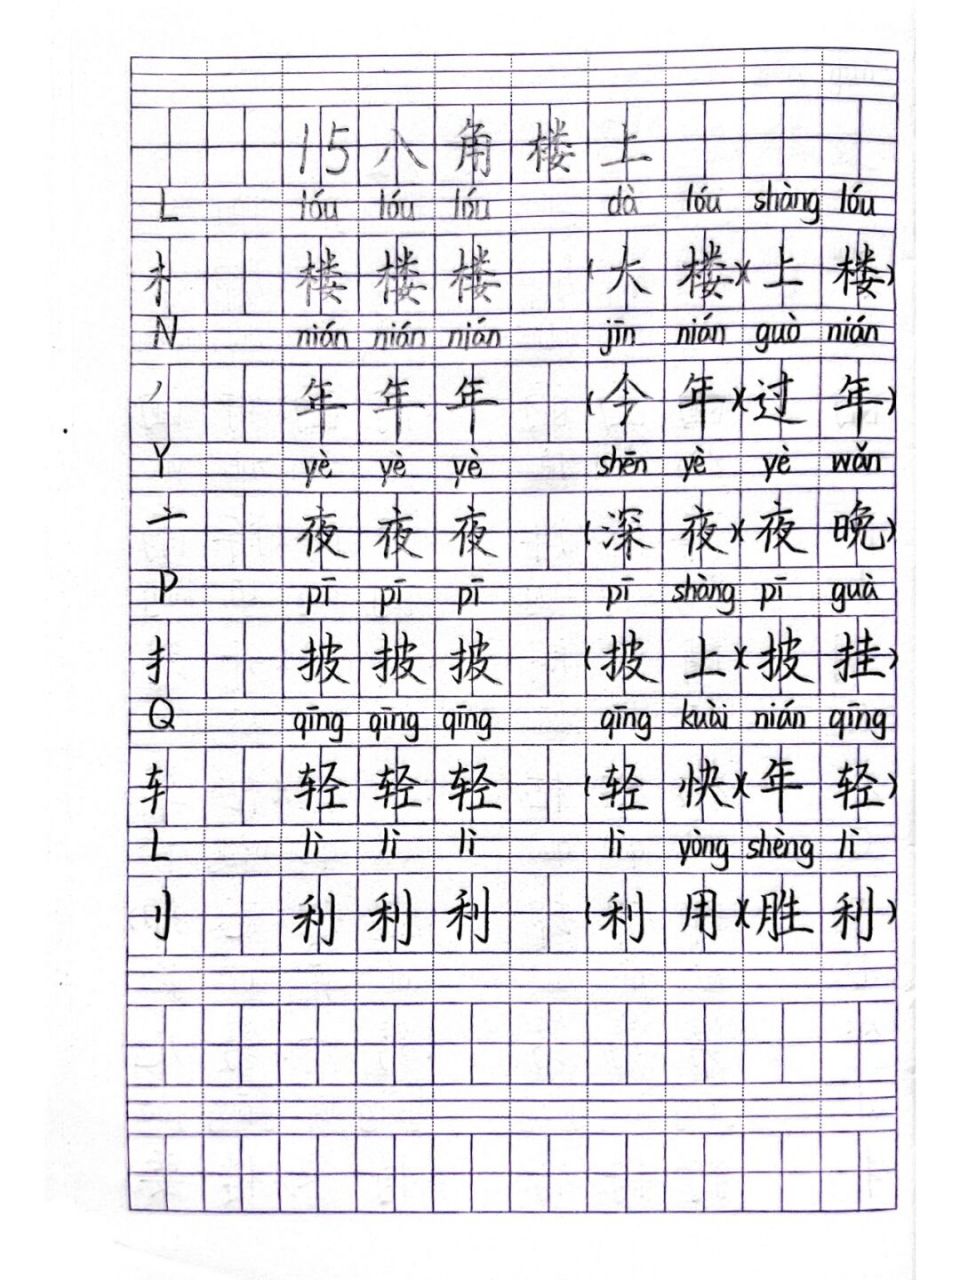 15 八角楼上
L lóu lóu lóu dà lóu shàng lóu
木 楼 楼 楼 (大楼)(上楼)
N nián nián nián jīn nián guò nián
丿 年 年 年 (今年)(过年)
Y yè yè yè shēn yè yè wǎn
亠 夜 夜 夜 (深夜)(夜晚)
P pī pī pī pī shàng pī guà
扌 披 披 披 (披上)(披挂)
Q qīng qīng qīng qīng kuài nián qīng
车 轻 轻 轻 (轻快)(年轻)
L lì lì lì lì yòng shèng lì
刂 利 利 利 (利用)(胜利)